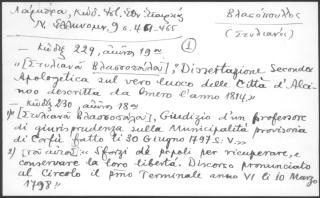 Λάμπρου, Κώδ. Ἱστ. Ἐθν. Ἑταιρείας
Ν. Ἑλληνομν. 9, σ. 464-465
Βλασόπουλος
(Στυλιανός)
1
— Κῶδιξ 229, αἰῶνος 19ου
"[Στυλιανοῦ Βλασσοπούλου], "Dissertazione Seconda
Apologetica sul vero luoco delle Città d'Alci-
noo descritta da Omero l'anno 1814"
— Κῶδιξ 230, αἰῶνος 18ου
1) "[Στυλιανοῦ Βλασσοπούλου], Giudizio d'un professore
di giurisprudenza sulla Municipalità provisoria
di Corfù fatto li 30 Giugno 1797 S.V."
2) [τοῦ αὐτοῦ]: Sforzi de popoli per ricuperare, e
conservare la loro libertà. Discorso pronunciato
al Circolo il pmo Terminale anno VI li 10 Marzo
1798"